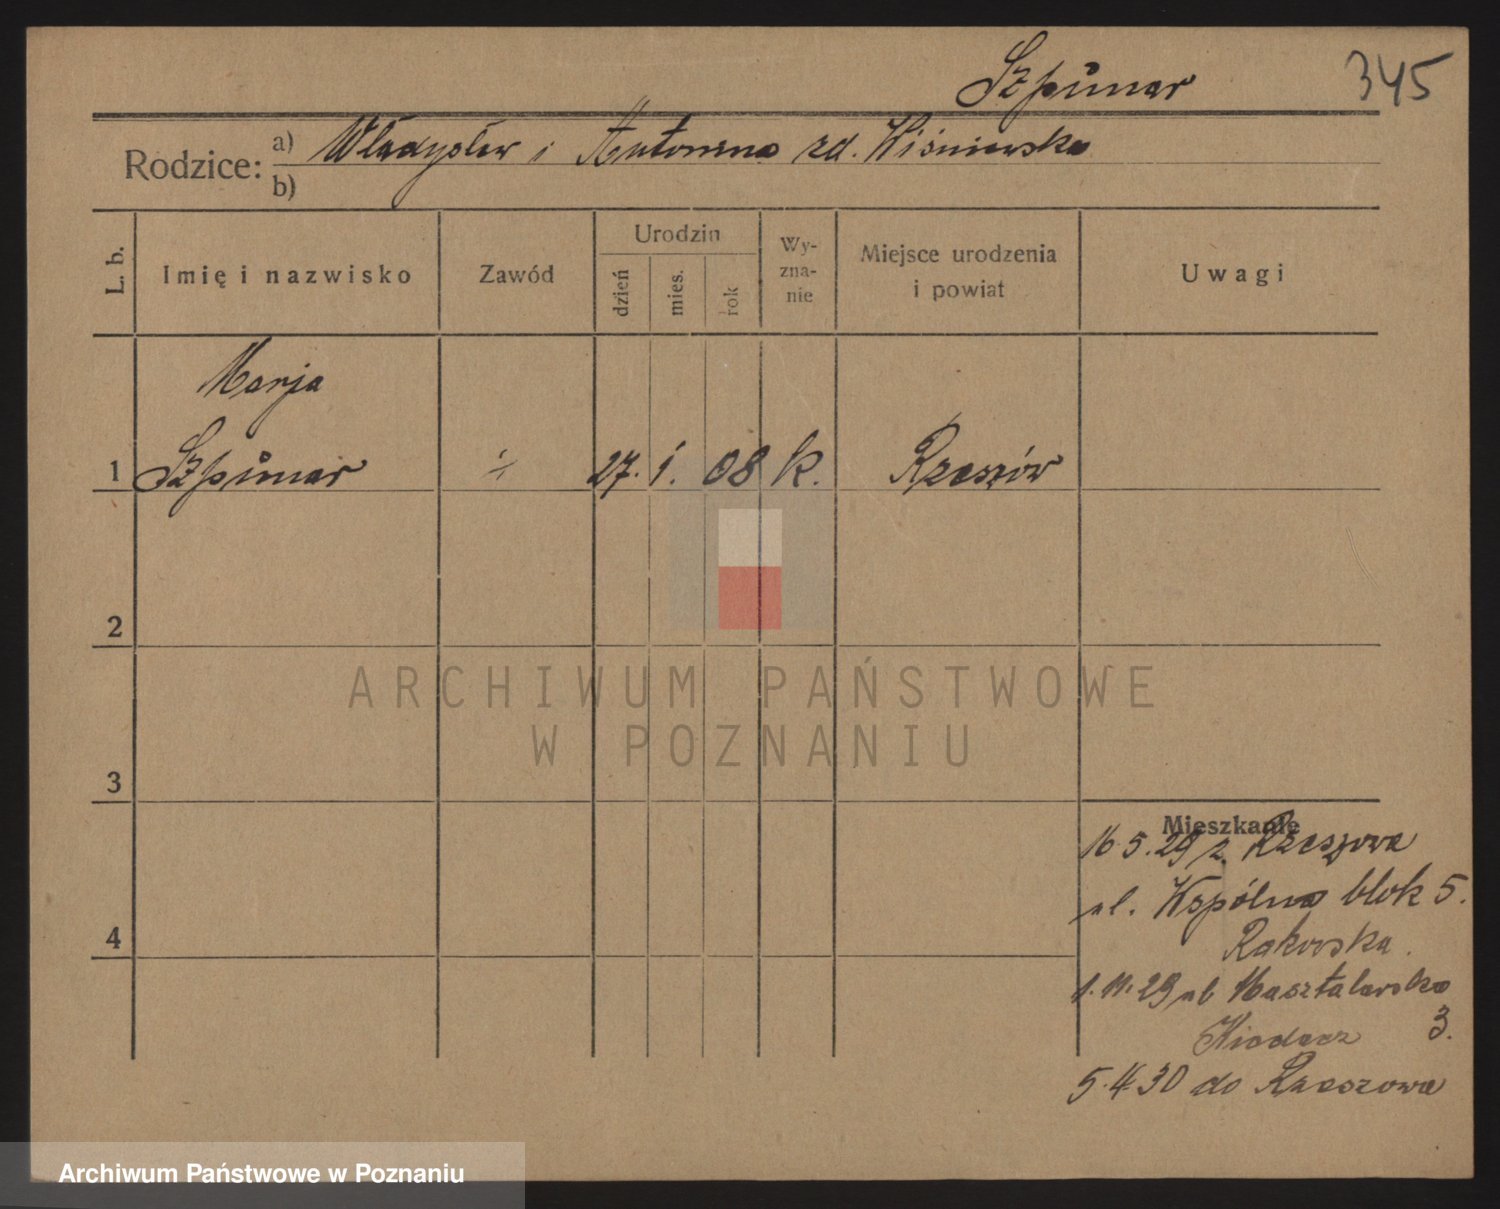 Szpunar 345
Rodzice: a) Władysław i Antonina zd. Wiśniewska
b)
L. b. Imię i nazwisko Zawód Urodzin dzień mies. rok Wy-zna-nie Miejsce urodzenia i powiat Uwagi
Marja
1 Szpunar ÷ 27. 1. 08 k. Rzeszów
2
ARCHIWUM PAŃSTWOWE
W POZNANIU
3
Mieszkanie
16 5. 29 z Rzeszowa
ul. Wspólna blok 5.
4
Rakowska.
1. 11. 29 ul Masztalarska
3.
5. 4. 30 do Rzeszowa
Archiwum Państwowe w Poznaniu